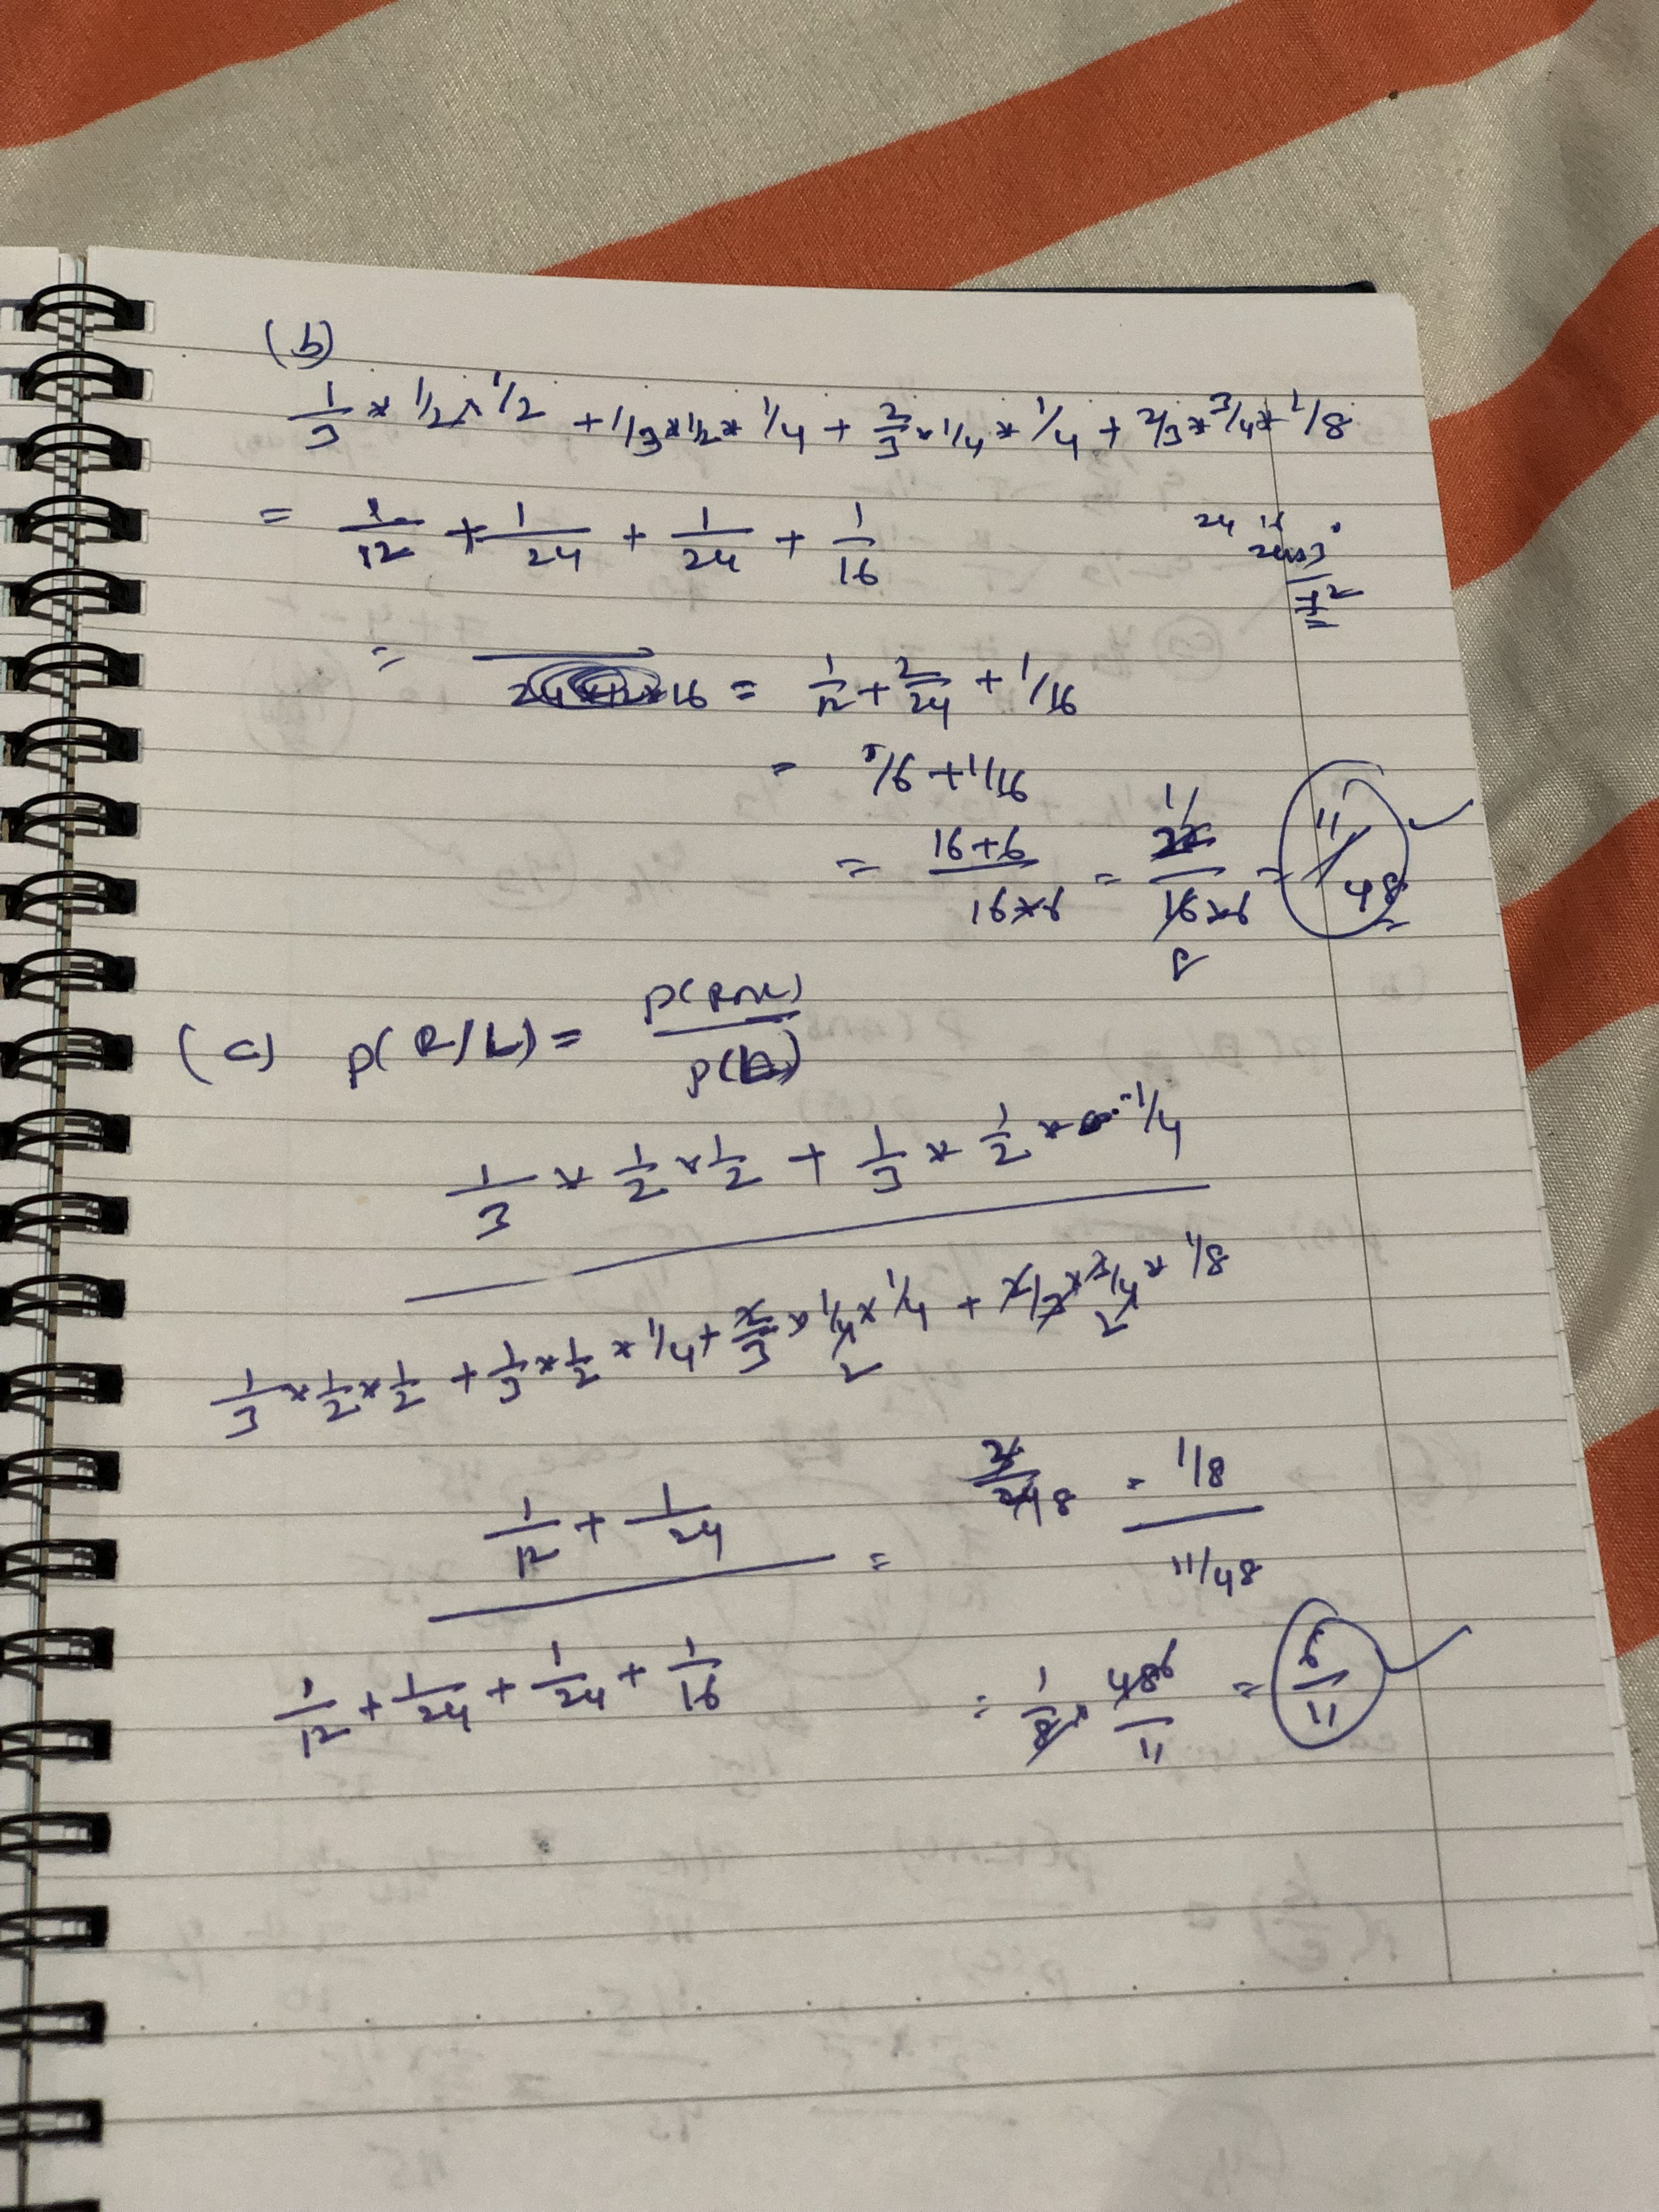 (b)
1/3 * 1/2 * 1/2 + 1/3 * 1/2 * 1/4 + 2/3 * 1/4 * 1/4 + 2/3 * 3/4 * 1/8
= 1/12 + 1/24 + 1/24 + 1/16
= 1/12 + 2/24 + 1/16
= 1/6 + 1/16
= (16+6)/(16*6) = 22/(16*6) = 11/48
(c) P(R/L) = P(R∩L)/P(L)
1/3 * 1/2 * 1/2 + 1/3 * 1/2 * 1/4
1/3 * 1/2 * 1/2 + 1/3 * 1/2 * 1/4 + 2/3 * 1/4 * 1/4 + 2/3 * 3/4 * 1/8
1/12 + 1/24 = 3/24 8 = 1/8
11/48
1/12 + 1/24 + 1/24 + 1/16
= 1/8 * 48 6/11 = 6/11